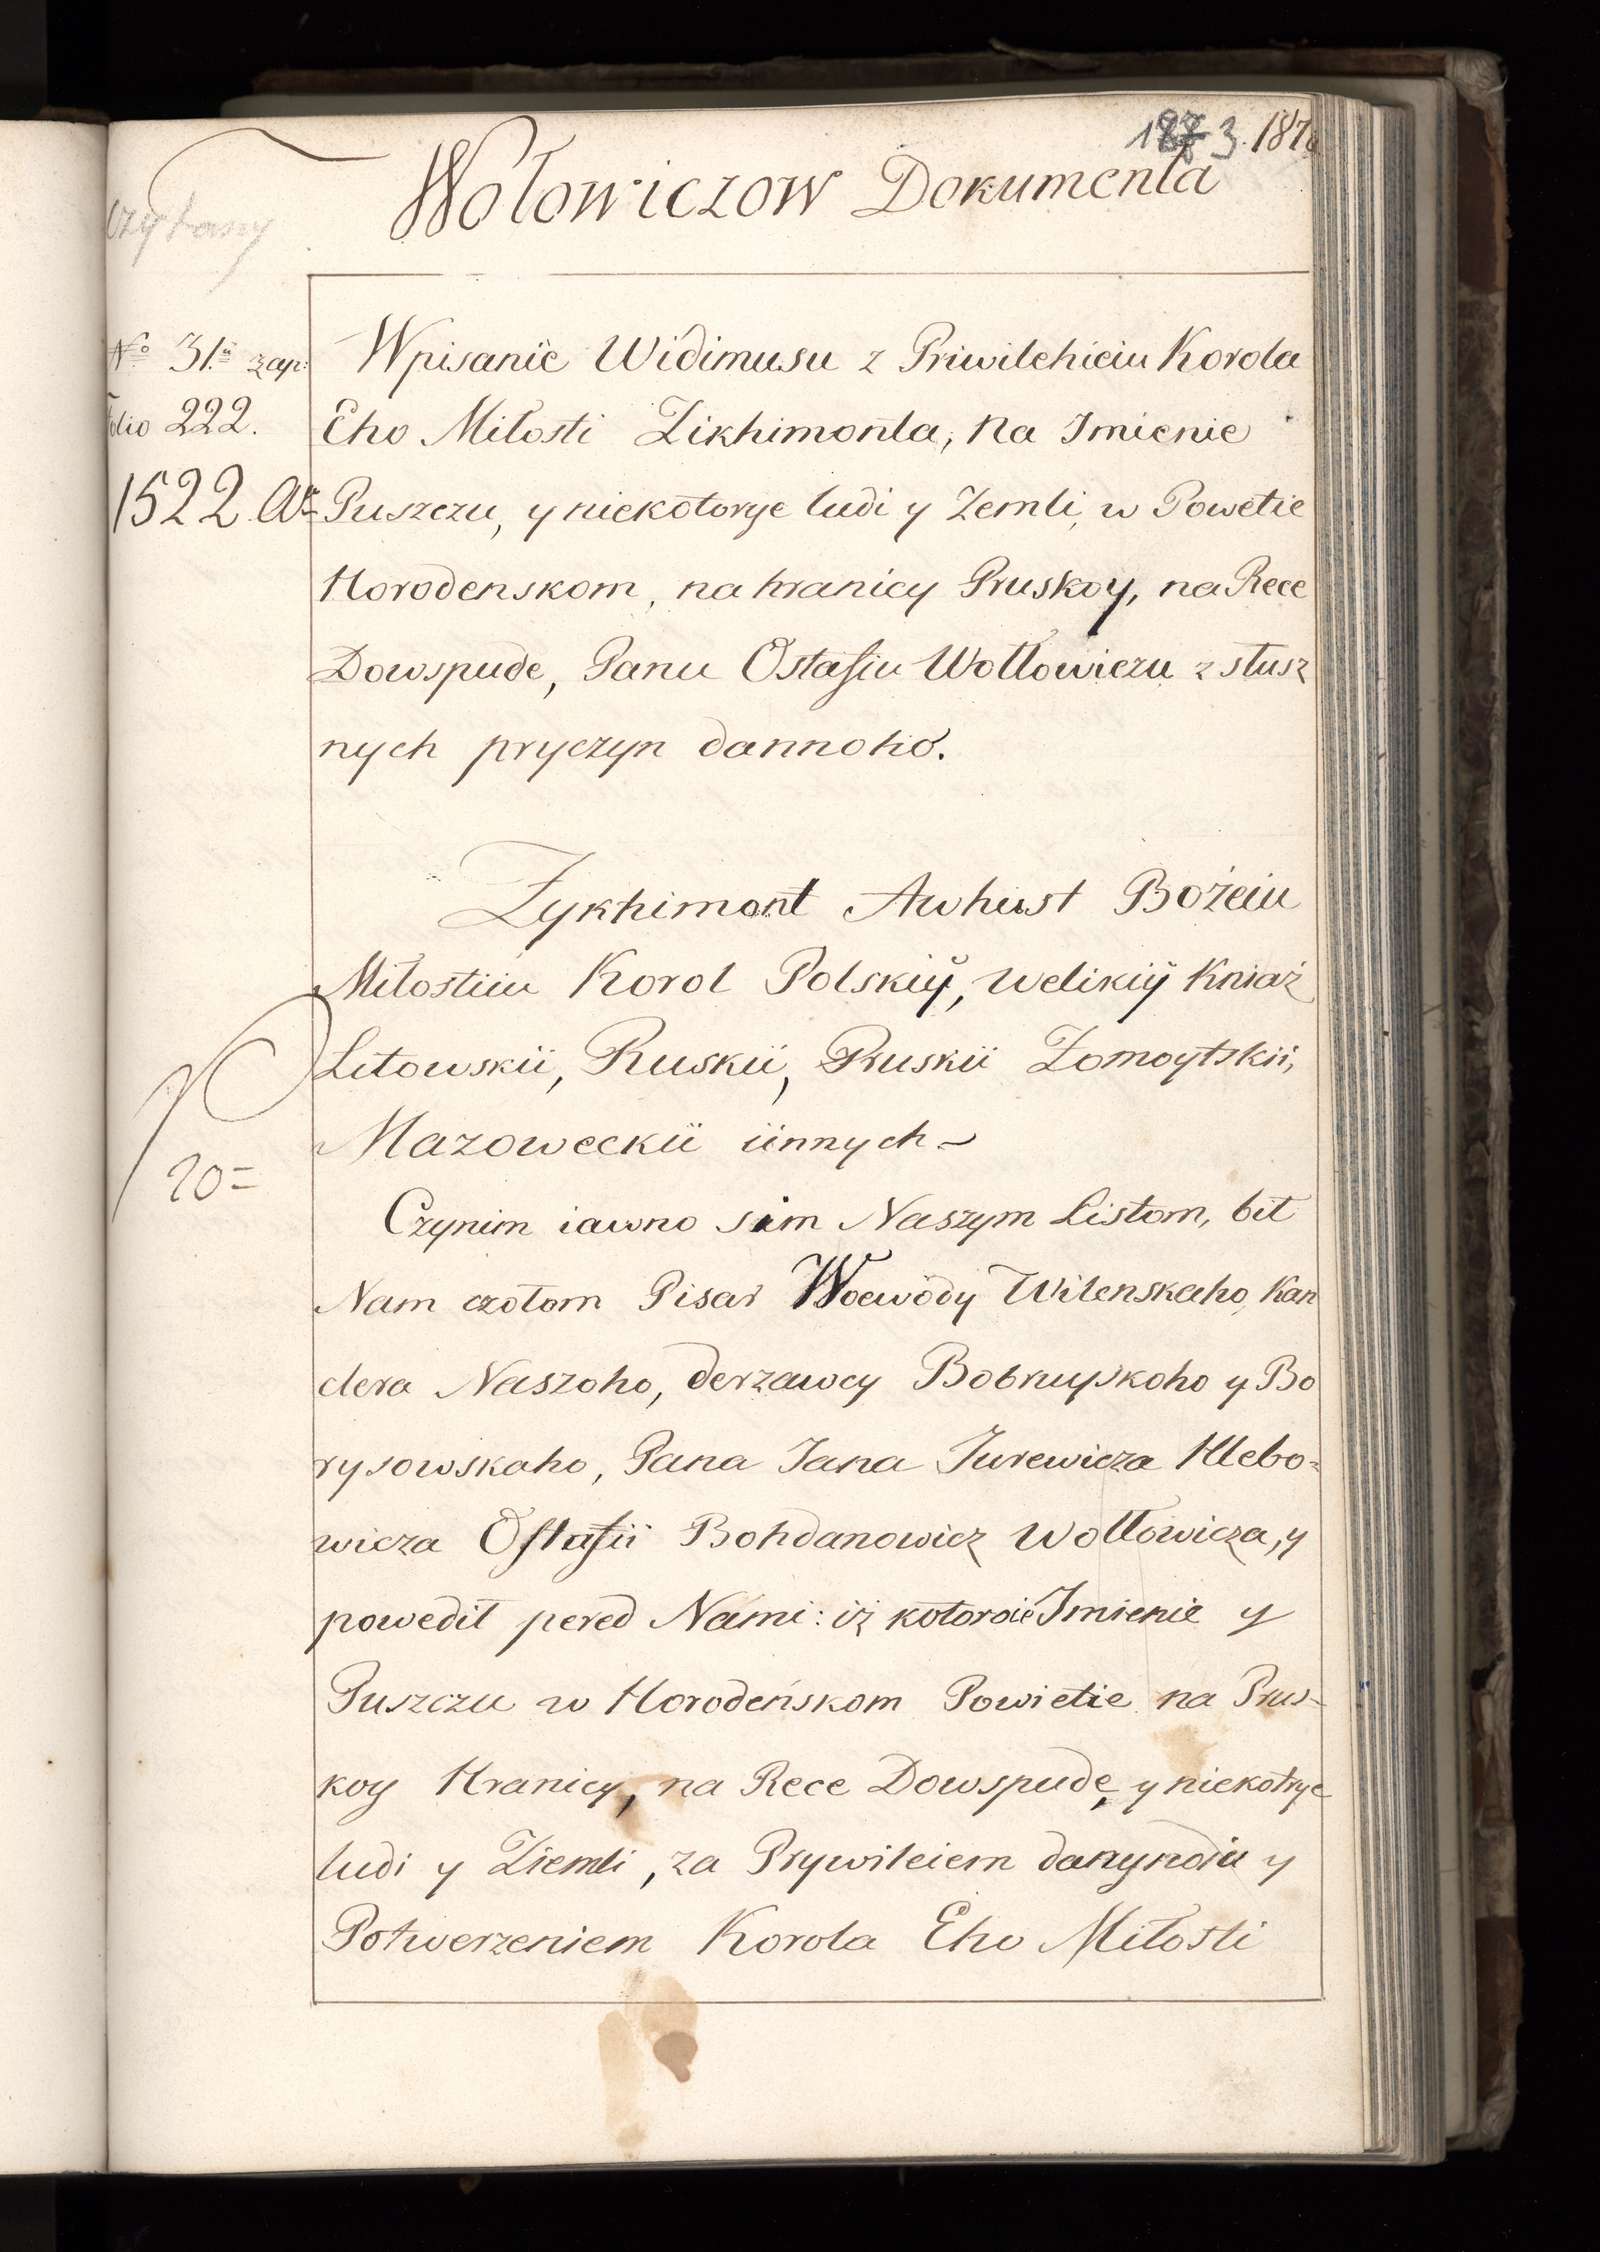 187 3. 187
Wołowiczow Dokumenta
czytany
No 31. zap:
folio 222.
1522 Ao
Wpisanie Widimusu z Priwilehieiu Korola
Eho Miłosti Zikhimonta, Na Imienie
Puszczu, y niekotorye ludi y Zemli, w Powetie
Horodenskom, na hranicy Pruskoy, na Rece
Dowspude, Panu Ostafiu Wołłowiczu z słusz
nych pryczyn dannoho.
Zykhimont Awhust Bożeiu
Miłostiiu Korol Polskiÿ, Welikiÿ Kniaź
Litowskii, Ruskii, Pruskii Żomoytskii,
Mazoweckii iinnych
20=
Czynim iawno sim Naszym Listom, bił
Nam czołom Pisar Woewody Wilenskaho, Kan
clera Naszoho, derzawcy Bobruyskoho y Bo
rysowskaho, Pana Jana Jurewicza Hlebo=
wicza Ostafii Bohdanowicz Wołłowicza, y
powedił pered Nami: iż kotoroie Imienie y
Puszczu w Horodeńskom Powietie na Prus-
koy Hranicy, na Rece Dowspude, y niekotrye
ludi y Ziemli, za Prywileiem y
Potwerzeniem Korola Eho Miłosti